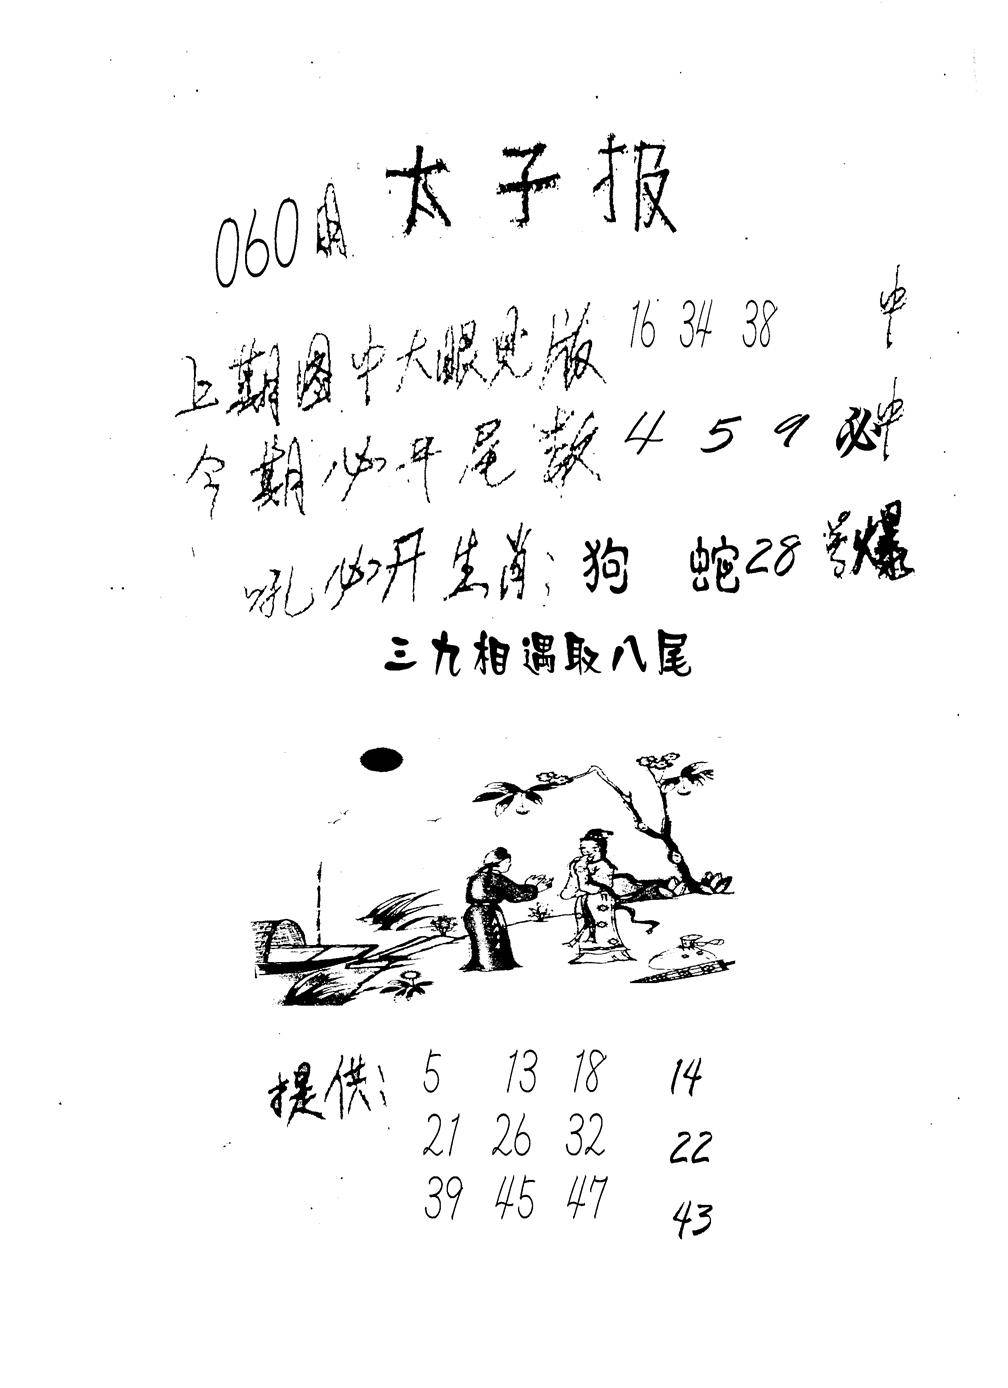 太子报
060期
上期图中大眼见版 16 34 38 中
今期必开尾数 4 5 9 必中
吼必开生肖: 狗 蛇 28 号爆
三九相遇取八尾
提供: 5 13 18 14
21 26 32 22
39 45 47 43